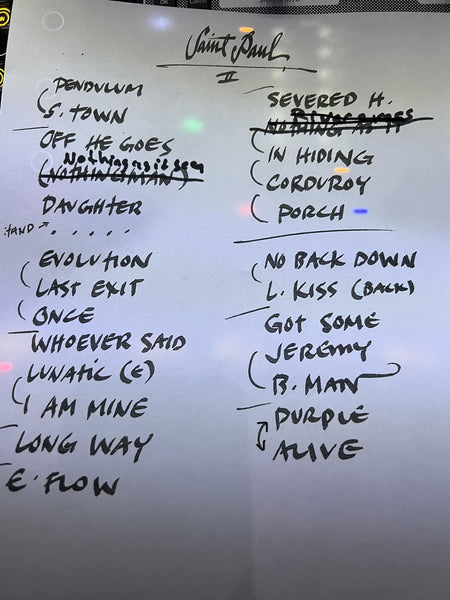 Saint Paul
II
PENDULUM
S. TOWN
OFF HE GOES
Nothing as it seem
(NOTHINGMAN)
DAUGHTER
→ . . . . .
EVOLUTION
LAST EXIT
ONCE
WHOEVER SAID
LUNATIC (E)
I AM MINE
LONG WAY
E. FLOW
SEVERED H.
River cross
NOTHING AS IT
IN HIDING
CORDUROY
PORCH
NO BACK DOWN
L. KISS (BACK)
GOT SOME
JEREMY
B. MAN
PURPLE
ALIVE